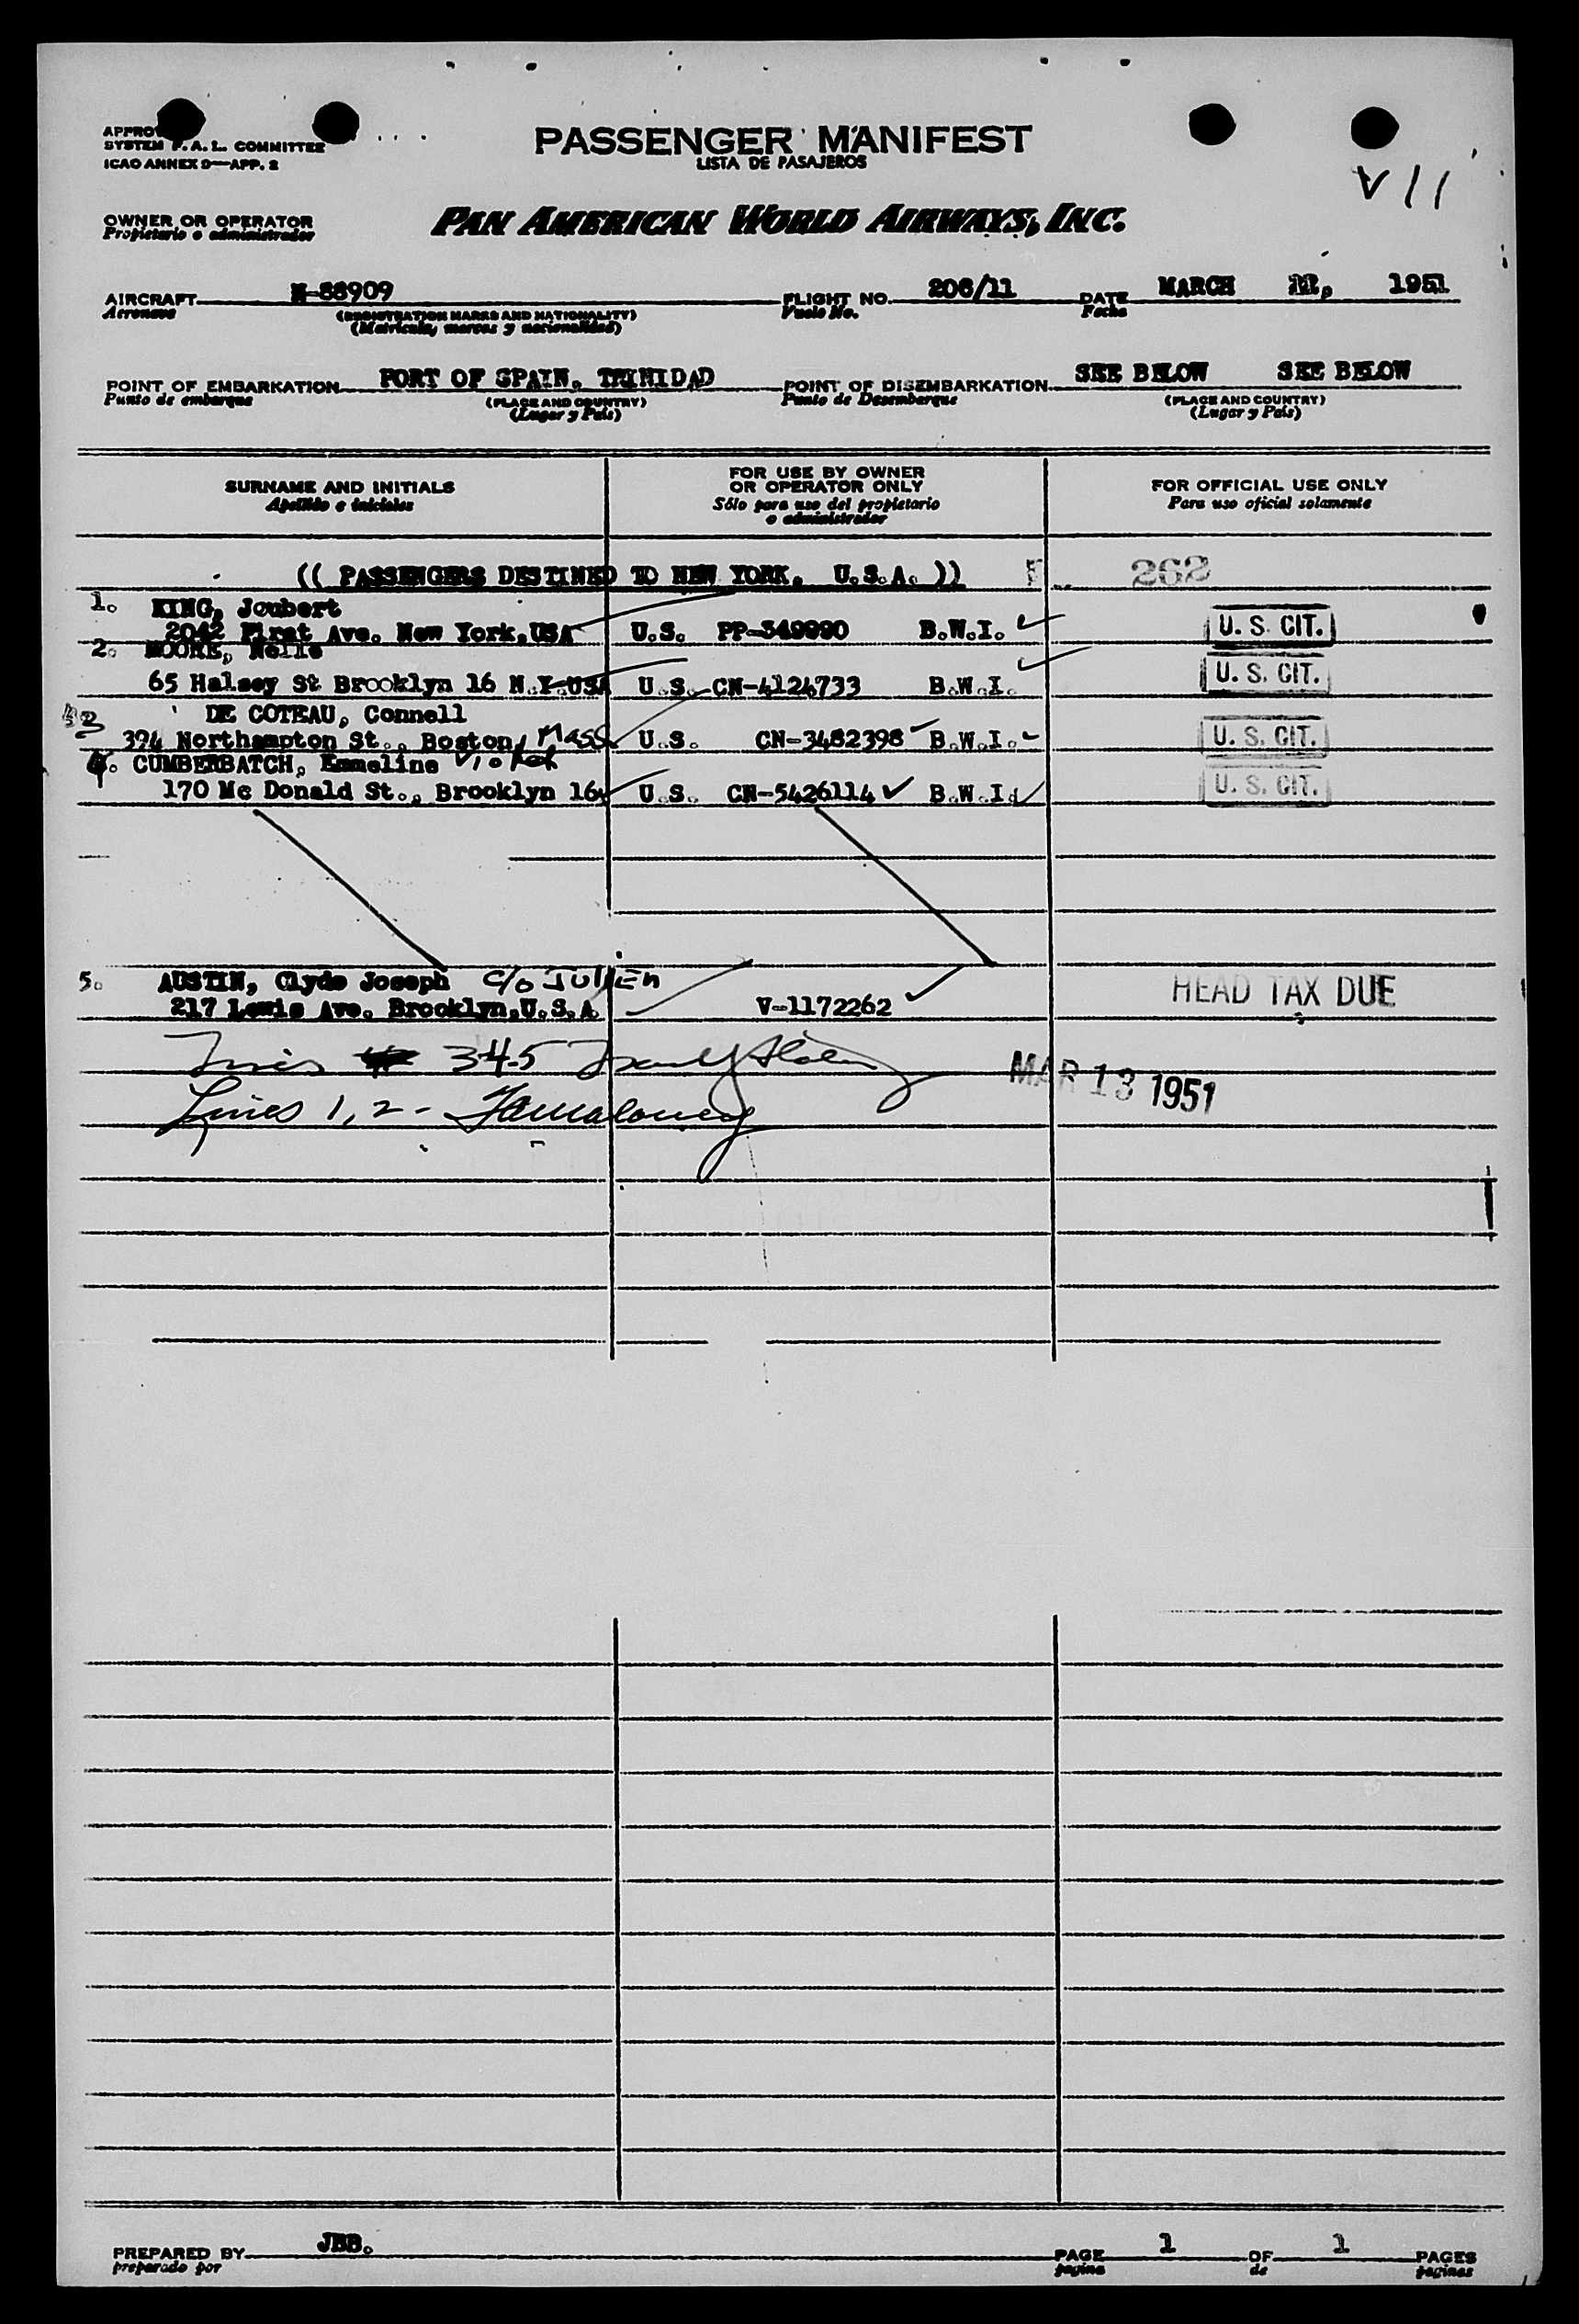 PASSENGER MANIFEST
LISTA DE PASAJEROS
SYSTEM F.A.L. COMMITTEE
ICAO ANNEX 9—APP. 2
V 11
OWNER OR OPERATOR PAN AMERICAN WORLD AIRWAYS, INC.
Propietario o administrador
AIRCRAFT N-88909 FLIGHT NO. 206/11 DATE MARCH 1951
Aeronave (REGISTRATION MARKS AND NATIONALITY) Vuelo No. Fecha
(Matricula, marcas y nacionalidad)
POINT OF EMBARKATION PORT OF SPAIN, TRINIDAD POINT OF DISEMBARKATION SEE BELOW SEE BELOW
Punto de embarque (PLACE AND COUNTRY) Punto de Desembarque (PLACE AND COUNTRY)
(Lugar y País) (Lugar y País)
SURNAME AND INITIALS
Apellido e iniciales
FOR USE BY OWNER
OR OPERATOR ONLY
Sólo para uso del propietario
o administrador
FOR OFFICIAL USE ONLY
Para uso oficial solamente
(( PASSENGERS DESTINED TO NEW YORK, U.S.A. )) 262
1. KING, Joubert
2042 First Ave. New York,USA U.S. PP-349990 B.W.I. U. S. CIT.
2. MOORE,
65 Halsey St Brooklyn 16 N.Y.USA U.S. CN-4124733 B.W.I. U. S. CIT.
3 DE COTEAU, Connell
394 Northampton St., Boston, Mass U.S. CN-3482398 B.W.I. U. S. CIT.
4. CUMBERBATCH, Emmeline Violet
170 Mc Donald St., Brooklyn 16 U.S. CN-5426114 B.W.I. U. S. CIT.
5. AUSTIN, Clyde Joseph C/o JulIEn
217 Lewis Ave. Brooklyn,U.S.A. V-1172262 HEAD TAX DUE
345
MAR 13 1951
Lines 1, 2 -
PREPARED BY JBB. PAGE 1 OF 1 PAGES
preparado por pagina de paginas